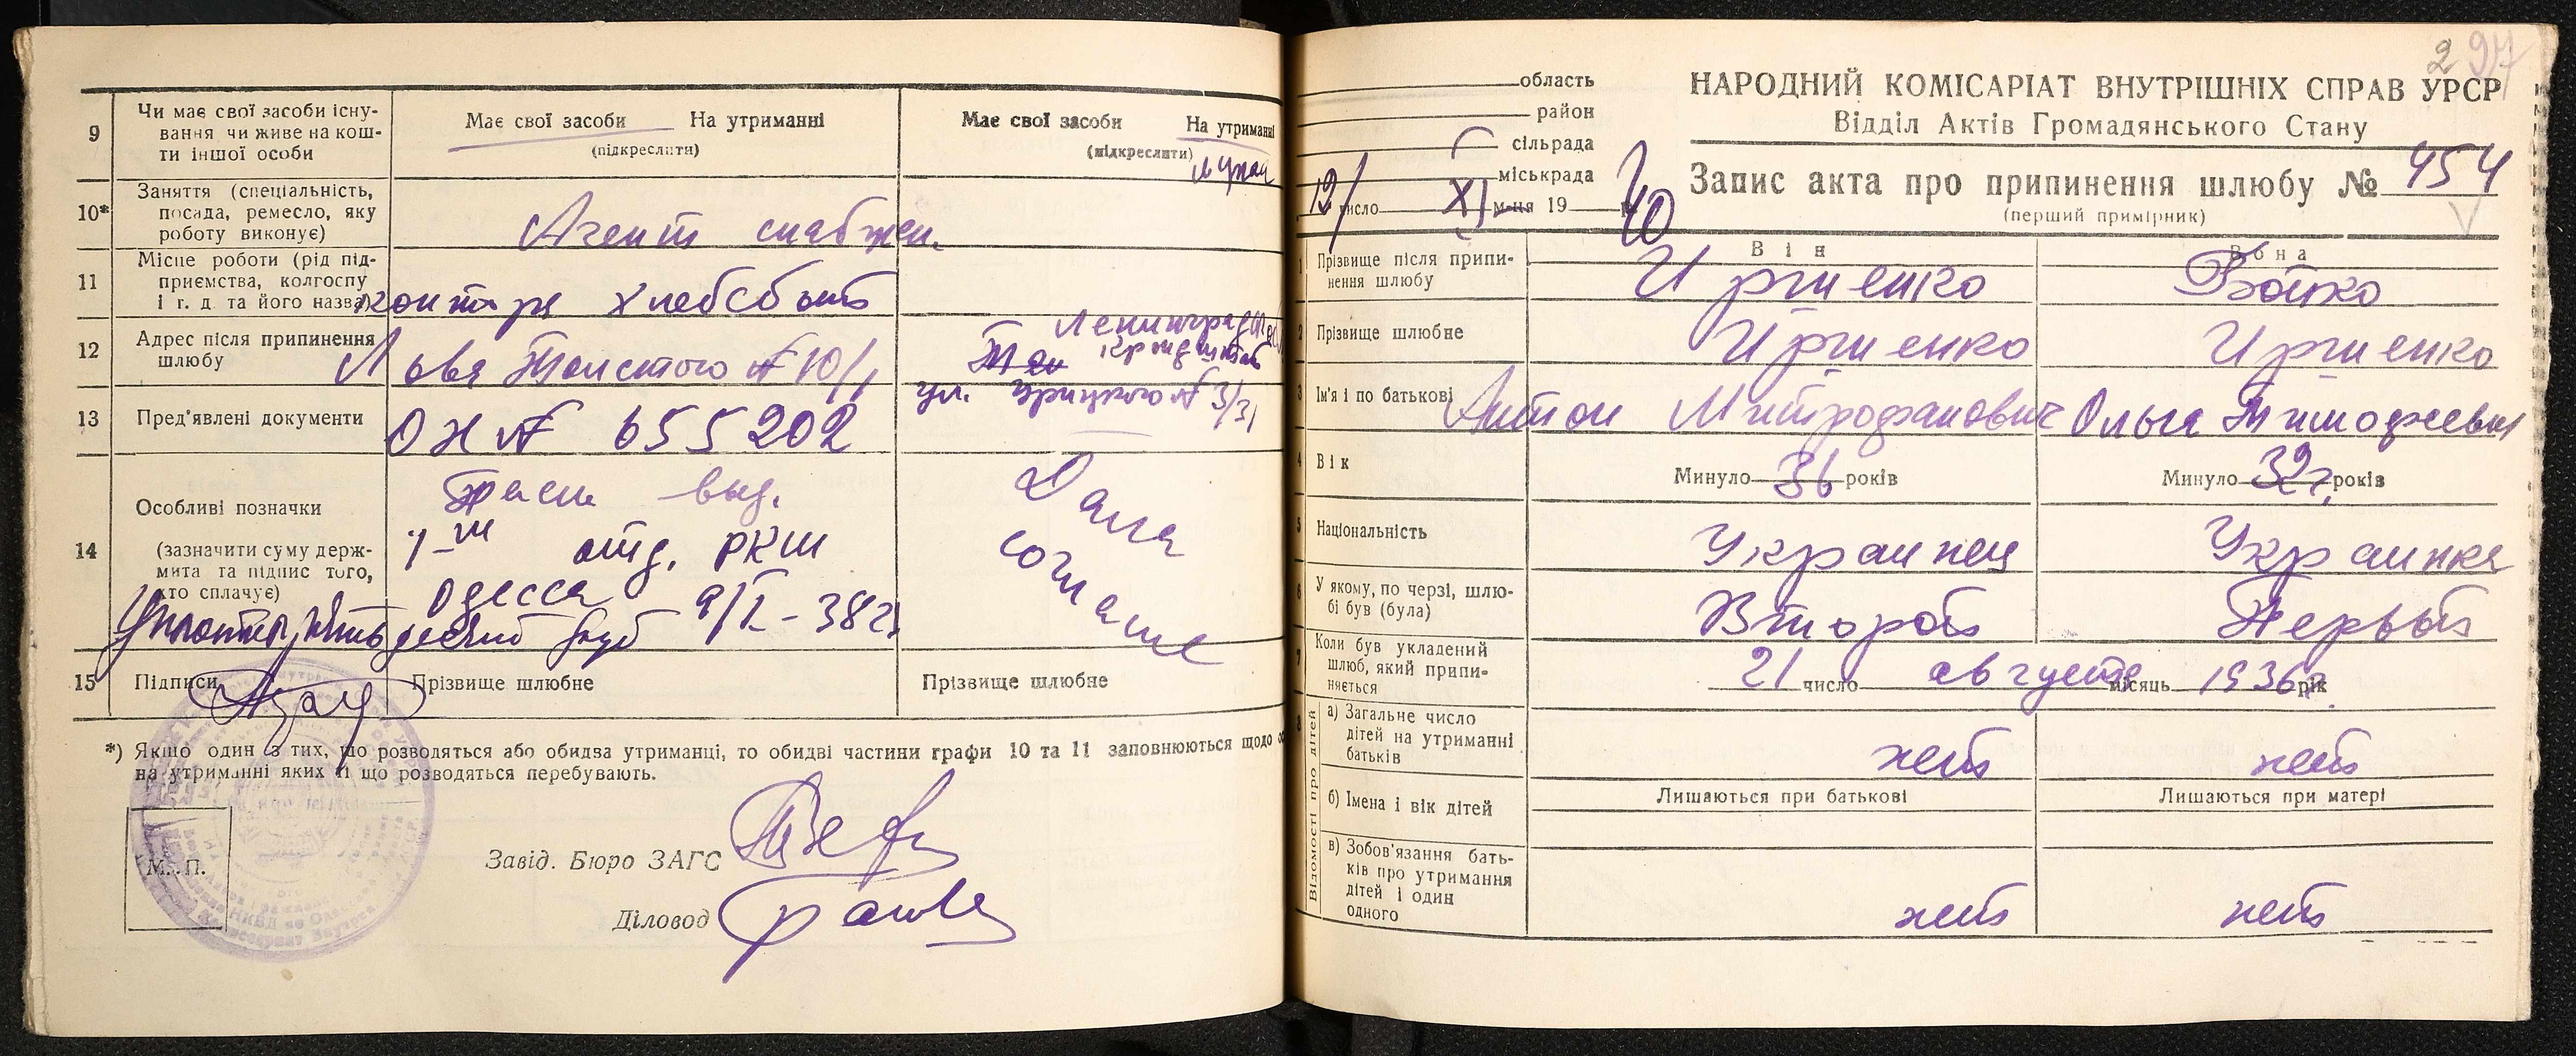 9
Чи має свої засоби існу-
вання чи живе на кош-
ти іншої особи
Має свої засоби На утриманні
(підкреслити)
Має свої засоби На утриманні
(підкреслити)
10*
Заняття (спеціальність,
посада, ремесло, яку
роботу виконує)
Агент снабжен.
11
Місце роботи (рід під-
приємства, колгоспу
і т. д. та його назва)
контора Хлебсбыт
12
Адрес після припинення
шлюбу
Льва Толстого № 10/1
Ленинград
Кронштат
ул. Урицкого № 3/31
13
Пред'явлені документи
ОЖ № 655202
14
Особливі позначки
(зазначити суму держ-
мита та підпис того,
хто сплачує)
Пасп. выд.
7-м отд. РКМ
Одесса 9/I-38 г.
руб
Дала
согласие
15
Підписи
Прізвище шлюбне
Прізвище шлюбне
*) Якщо один з тих, що розводяться або обидва утриманці, то обидві частини графи 10 та 11 заповнюються щодо
на утриманні яких ті що розводяться перебувають.
М. П.
Завід. Бюро ЗАГС
Діловод
297
область
район
сільрада
міськрада
12/ число XI м-ця 1940
НАРОДНИЙ КОМІСАРІАТ ВНУТРІШНІХ СПРАВ УРСР
Відділ Актів Громадянського Стану
Запис акта про припинення шлюбу № 454
(перший примірник)
Він
Вона
1
Прізвище після припи-
нення шлюбу
Иршенко
Бойко
2
Прізвище шлюбне
Иршенко
Иршенко
3
Ім'я і по батькові
Антон Митрофанович
Ольга Тимофеевна
4
Вік
Минуло 36 років
Минуло 32 г. років
5
Національність
Украинец
Украинка
6
У якому, по черзі, шлю-
бі був (була)
Второй
Первый
7
Коли був укладений
шлюб, який припи-
няється
21 число августа місяць 1936 г. рік
8
Відомості про дітей
а) Загальне число
дітей на утриманні
батьків
нет
нет
б) Імена і вік дітей
Лишаються при батькові
Лишаються при матері
в) Зобов'язання бать-
ків про утримання
дітей і один
одного
нет
нет